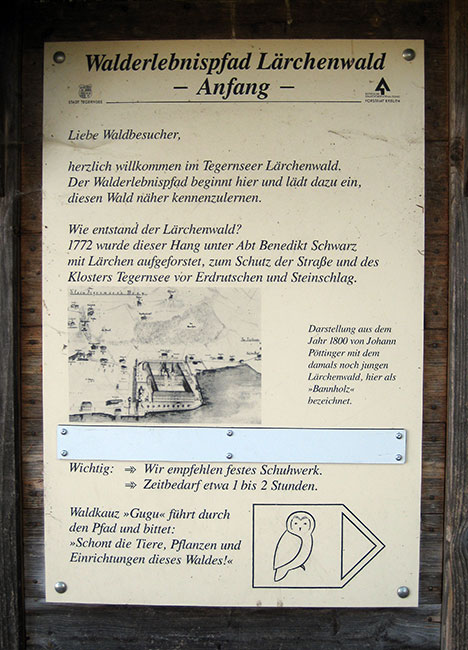 Walderlebnispfad Lärchenwald
– Anfang –
STADT TEGERNSEE
FORSTAMT KREUTH
Liebe Waldbesucher,
herzlich willkommen im Tegernseer Lärchenwald.
Der Walderlebnispfad beginnt hier und lädt dazu ein,
diesen Wald näher kennenzulernen.
Wie entstand der Lärchenwald?
1772 wurde dieser Hang unter Abt Benedikt Schwarz
mit Lärchen aufgeforstet, zum Schutz der Straße und des
Klosters Tegernsee vor Erdrutschen und Steinschlag.
Darstellung aus dem
Jahr 1800 von Johann
Pöttinger mit dem
damals noch jungen
Lärchenwald, hier als
»Bannholz«
bezeichnet.
Wichtig: ⇒ Wir empfehlen festes Schuhwerk.
⇒ Zeitbedarf etwa 1 bis 2 Stunden.
Waldkauz »Gugu« führt durch
den Pfad und bittet:
»Schont die Tiere, Pflanzen und
Einrichtungen dieses Waldes!«